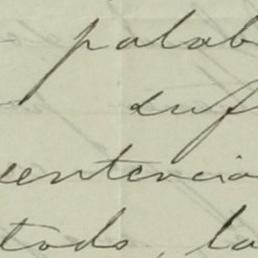 palab
suf
sentencia
tods, la